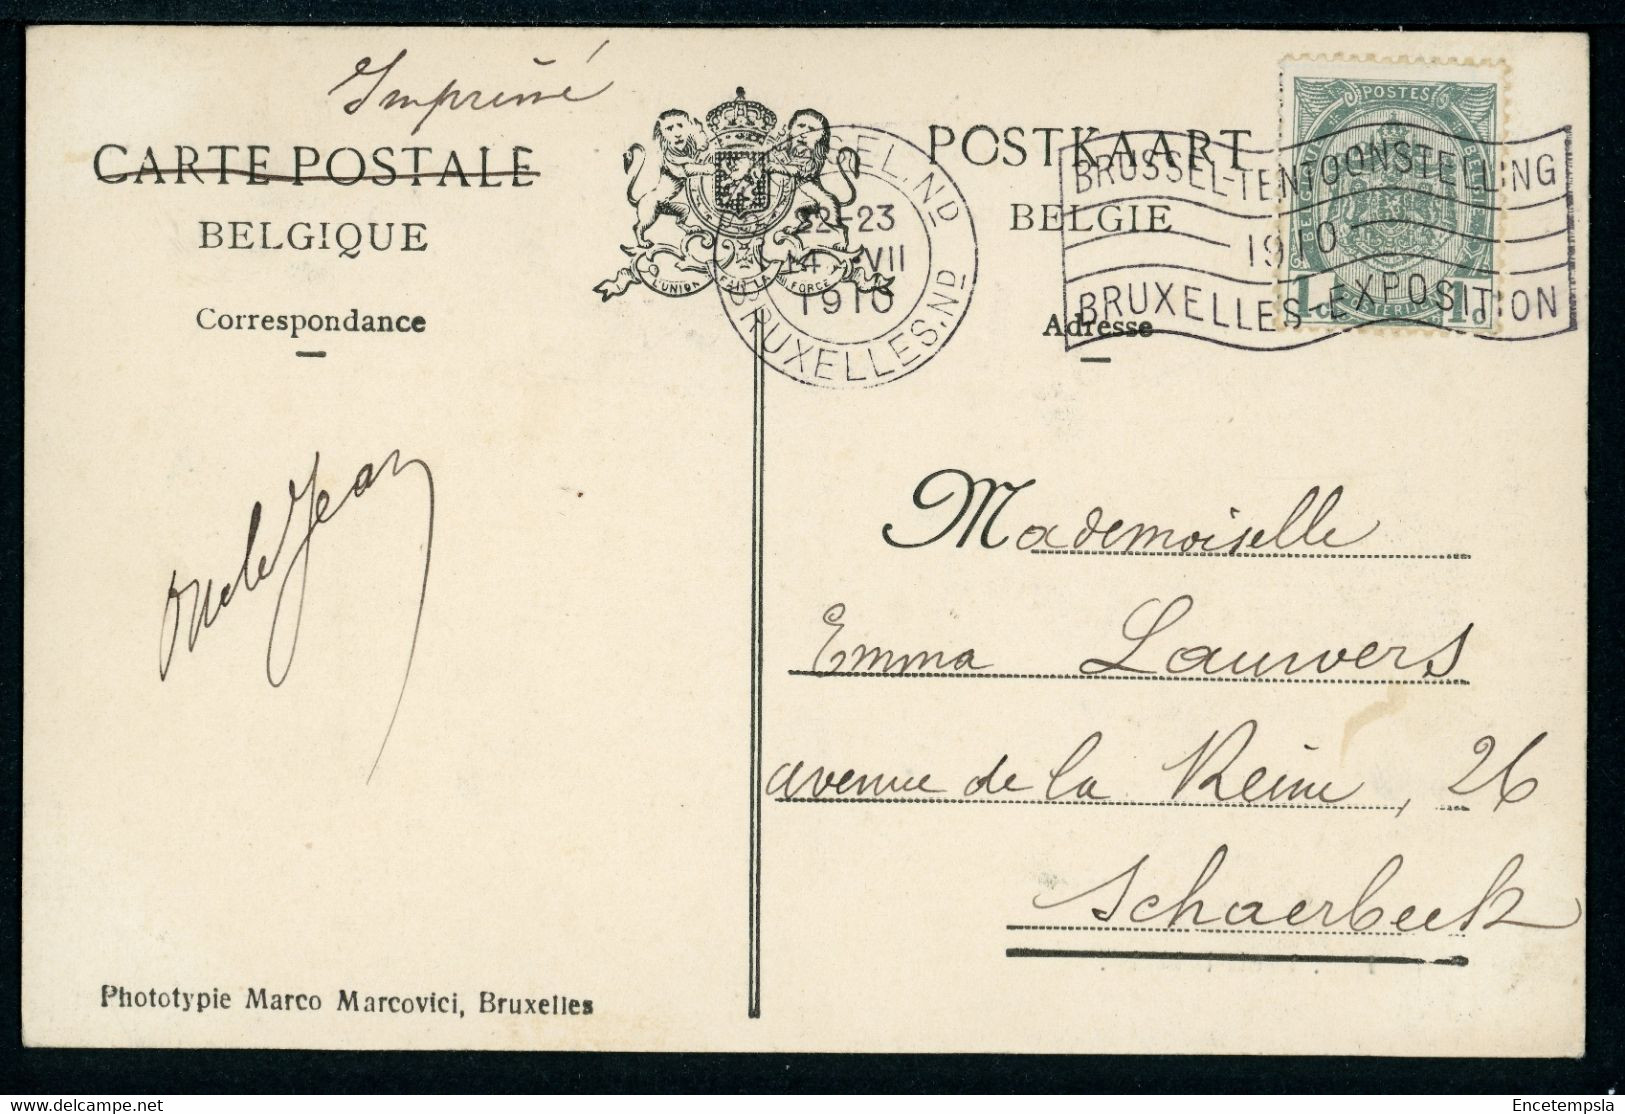 Imprimé
CARTE POSTALE
BELGIQUE
Correspondance
L'UNION FAIT LA FORCE
POSTKAART
BELGIE
Adresse
BRUSSEL.Nᴅ
22-23
14 VII
1910
BRUXELLES.Nᴅ
BRUSSEL-TENTOONSTELLING
1910
BRUXELLES-EXPOSITION
POSTES
BELGIQUE
BELGIË
1c
1c
Oncle Jean
Mademoiselle
Emma Lauwers
avenue de la Reine, 26
Schaerbeek
Phototypie Marco Marcovici, Bruxelles
delcampe.net
Encetempsla